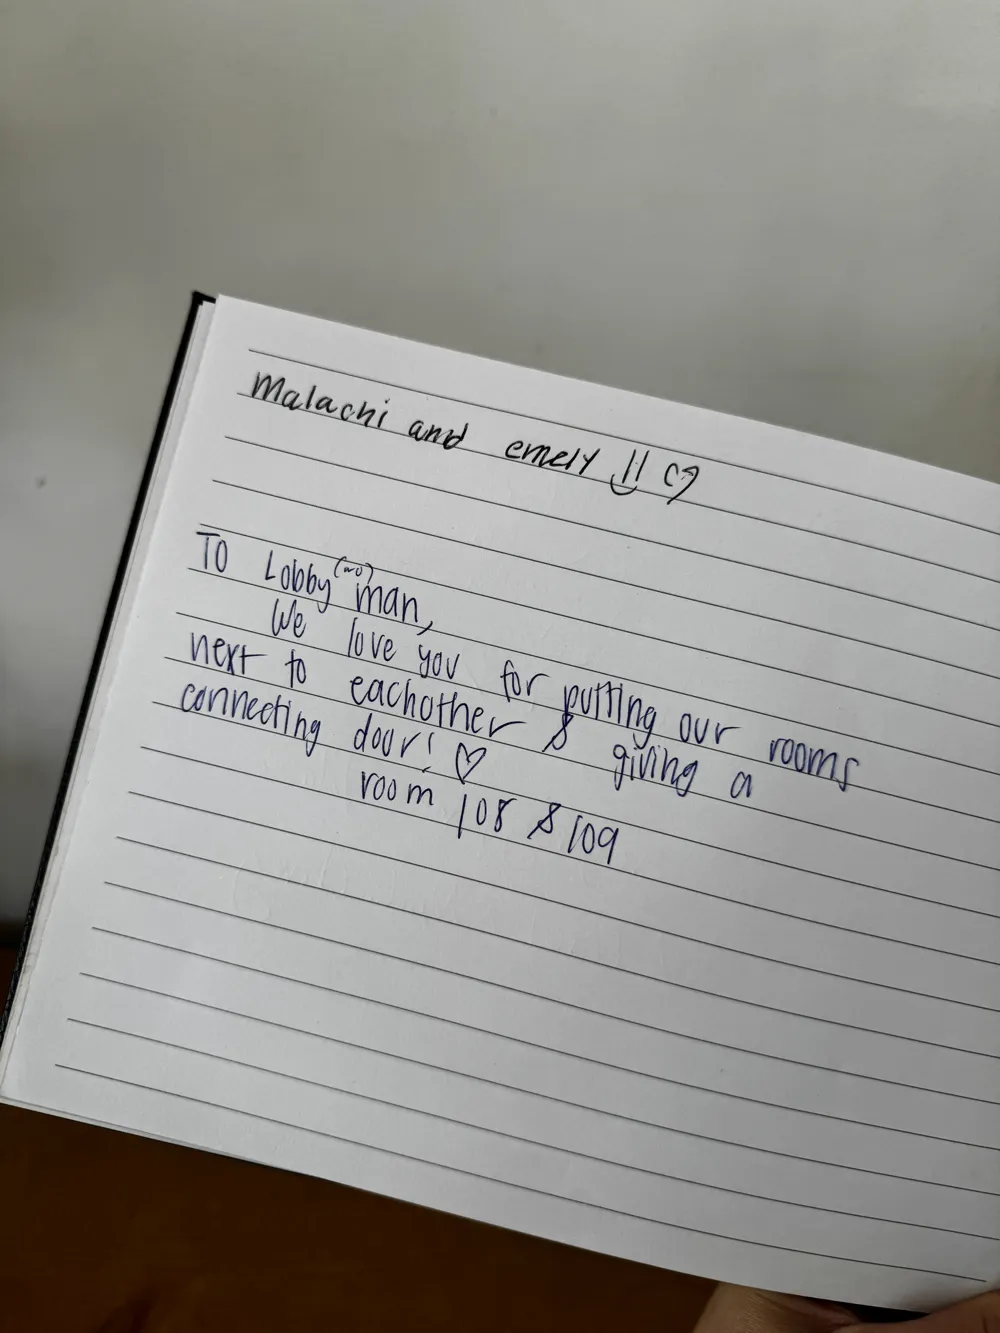 Malachi and emely !! ♡
TO Lobby man,
We love you for putting our rooms
next to eachother & giving a
connecting door! ♡
room 108 & 109